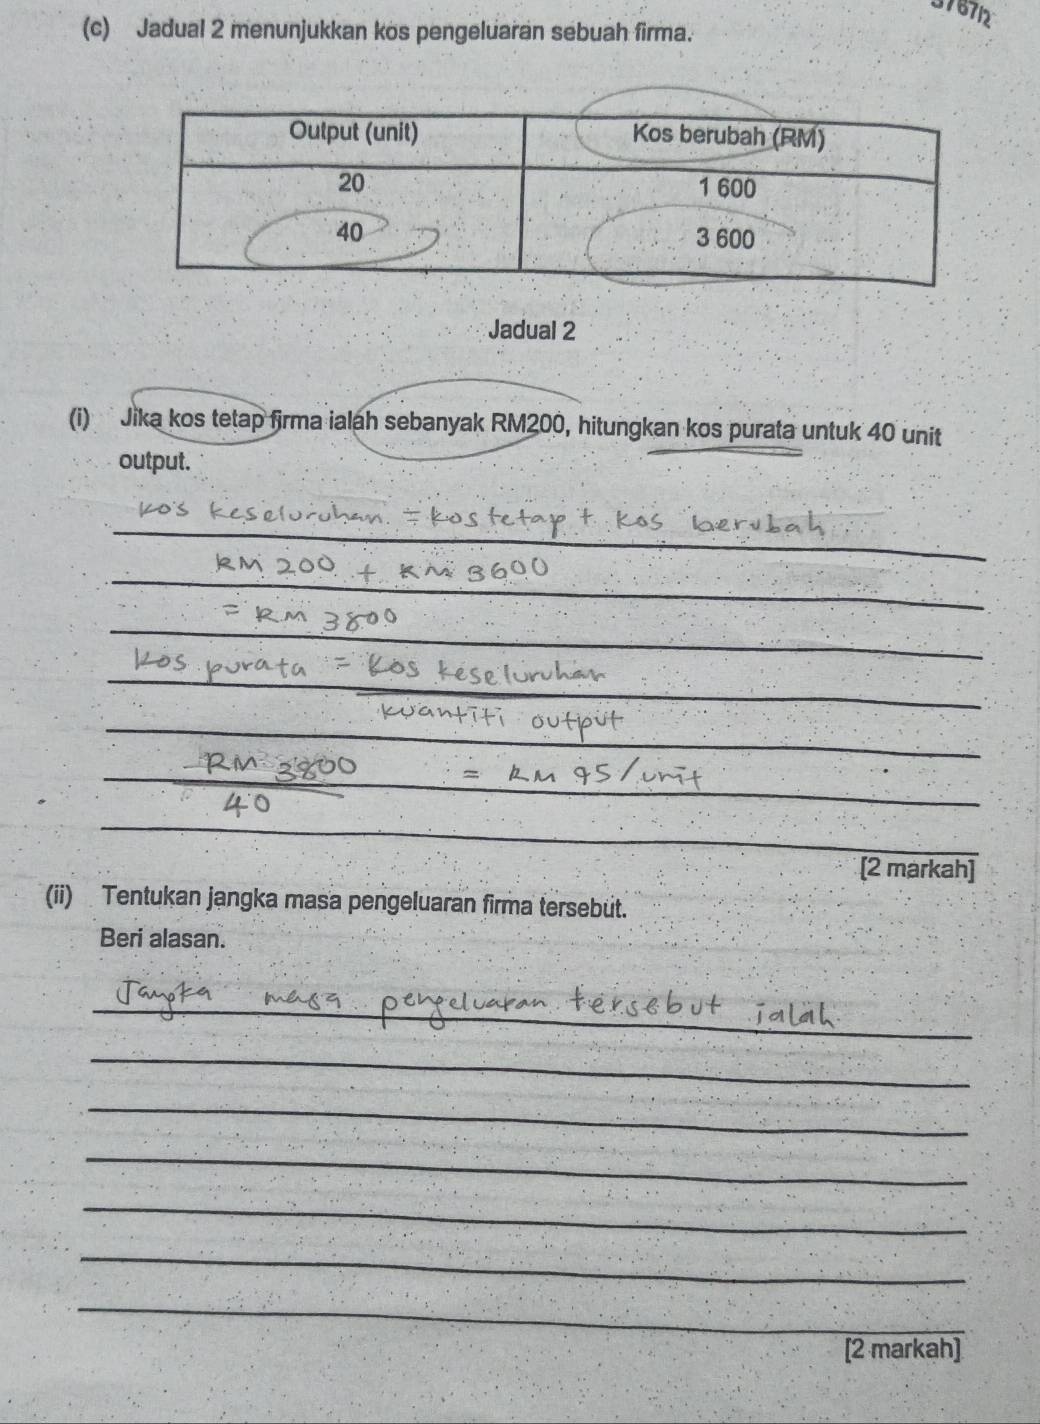 3767/2
(c) Jadual 2 menunjukkan kos pengeluaran sebuah firma.
Output (unit) Kos berubah (RM)
20 1 600
40 3 600
Jadual 2
(i) Jika kos tetap firma ialah sebanyak RM200, hitungkan kos purata untuk 40 unit
output.
kos keseluruhan = kos tetap + kos berubah
RM 200 + RM 3600
= RM 3800
kos purata = kos keseluruhan
kuantiti output
RM 3800 = RM 95/unit
40
[2 markah]
(ii) Tentukan jangka masa pengeluaran firma tersebut.
Beri alasan.
Jangka masa pengeluaran tersebut ialah
[2 markah]